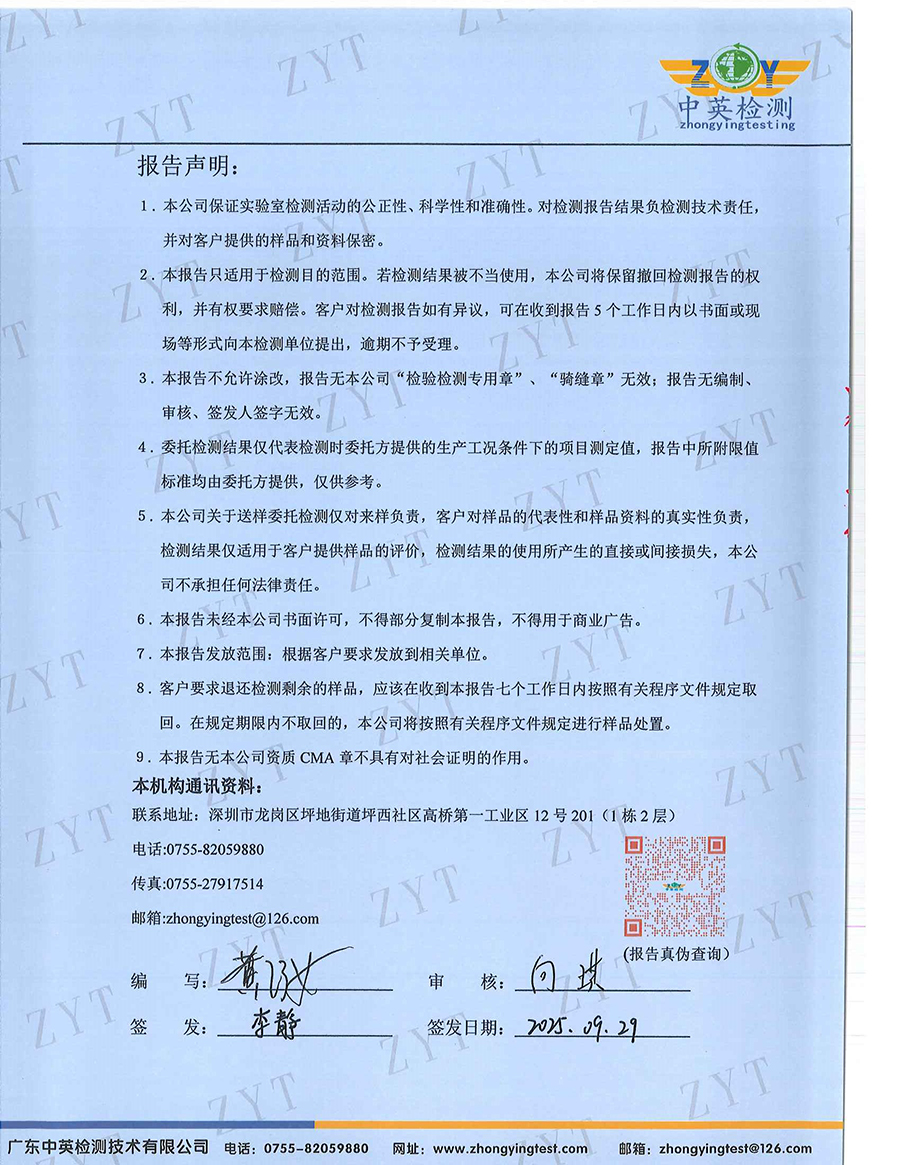 ZYT
ZY
中英检测
zhongyingtesting
报告声明：
1．本公司保证实验室检测活动的公正性、科学性和准确性。对检测报告结果负检测技术责任，
并对客户提供的样品和资料保密。
2．本报告只适用于检测目的范围。若检测结果被不当使用，本公司将保留撤回检测报告的权
利，并有权要求赔偿。客户对检测报告如有异议，可在收到报告 5 个工作日内以书面或现
场等形式向本检测单位提出，逾期不予受理。
3．本报告不允许涂改，报告无本公司“检验检测专用章”、“骑缝章”无效；报告无编制、
审核、签发人签字无效。
4．委托检测结果仅代表检测时委托方提供的生产工况条件下的项目测定值，报告中所附限值
标准均由委托方提供，仅供参考。
5．本公司关于送样委托检测仅对来样负责，客户对样品的代表性和样品资料的真实性负责，
检测结果仅适用于客户提供样品的评价，检测结果的使用所产生的直接或间接损失，本公
司不承担任何法律责任。
6．本报告未经本公司书面许可，不得部分复制本报告，不得用于商业广告。
7．本报告发放范围：根据客户要求发放到相关单位。
8．客户要求退还检测剩余的样品，应该在收到本报告七个工作日内按照有关程序文件规定取
回。在规定期限内不取回的，本公司将按照有关程序文件规定进行样品处置。
9．本报告无本公司资质 CMA 章不具有对社会证明的作用。
本机构通讯资料：
联系地址：深圳市龙岗区坪地街道坪西社区高桥第一工业区 12 号 201（1 栋 2 层）
电话:0755-82059880
传真:0755-27917514
邮箱:zhongyingtest@126.com
(报告真伪查询)
编 写： 审 核：向琪
签 发：李静 签发日期：2025.09.29
广东中英检测技术有限公司 电话：0755-82059880 网址：www.zhongyingtest.com 邮箱：zhongyingtest@126.com